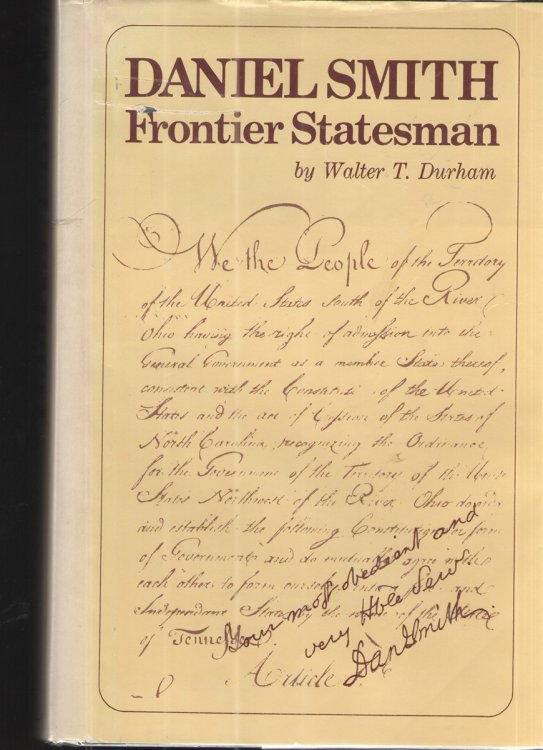 DANIEL SMITH
Frontier Statesman
by Walter T. Durham
We the People of the Territory
of the United States South of the River
Ohio having the right of admission into the
General Government as a member State thereof,
consistent with the of the United
States and the act of Cession of the State of
North Carolina, recognizing the Ordinance
for the Government of the Territory of the
States Northwest of the River Ohio
and establish the following Constitution or form
of Government and do mutually agree with
each other to form and
Independent State by the name of the
of Tennessee.
Article
Your most obedient and
very Hble Serv
Danl Smith